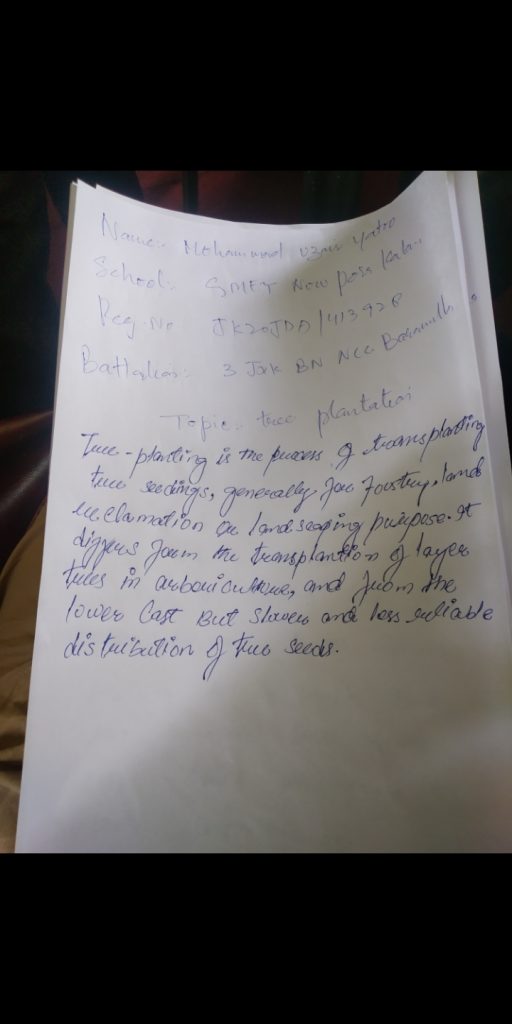 Name:- Mohammad
School:- New
Reg. No JK20JDA/413928
Battalion:- 3 J&K BN NCC Baramulla
Topic:- tree plantation
Tree-planting is the process of transplanting
tree seedings, generally for Forstry, land
reclamation or landscaping purpose. It
differs form the transplantion of layer
trees in arboriculture, and from the
lower Cast But slower and less reliable
distribution of tree seeds.